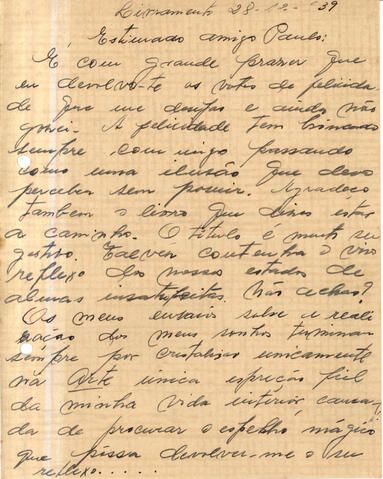 Livramento 28-12-39
Estimado amigo Paulo:
É com grande prazer que
eu devolvo-te os votos de felicida
de que me desejas e ainda não
gozei. A felicidade tem brincado
sempre comigo passando
como uma ilusão que devo
perceber sem possuir. Agradeço
tambem o livro que dizes estar
a caminho. O titulo é muito su
gestivo. Talvez contenha o vivo
reflexo dos nossos estados de
almas insatisfeitas. Não achas?
Os meus ensaios sobre a reali
zação dos meus sonhos terminam
sempre por cristalizar unicamente
na Arte única expreção fiel
da minha vida interior cansa
da de procurar o espelho mágico
que possa devolver-me o seu
reflexo.....